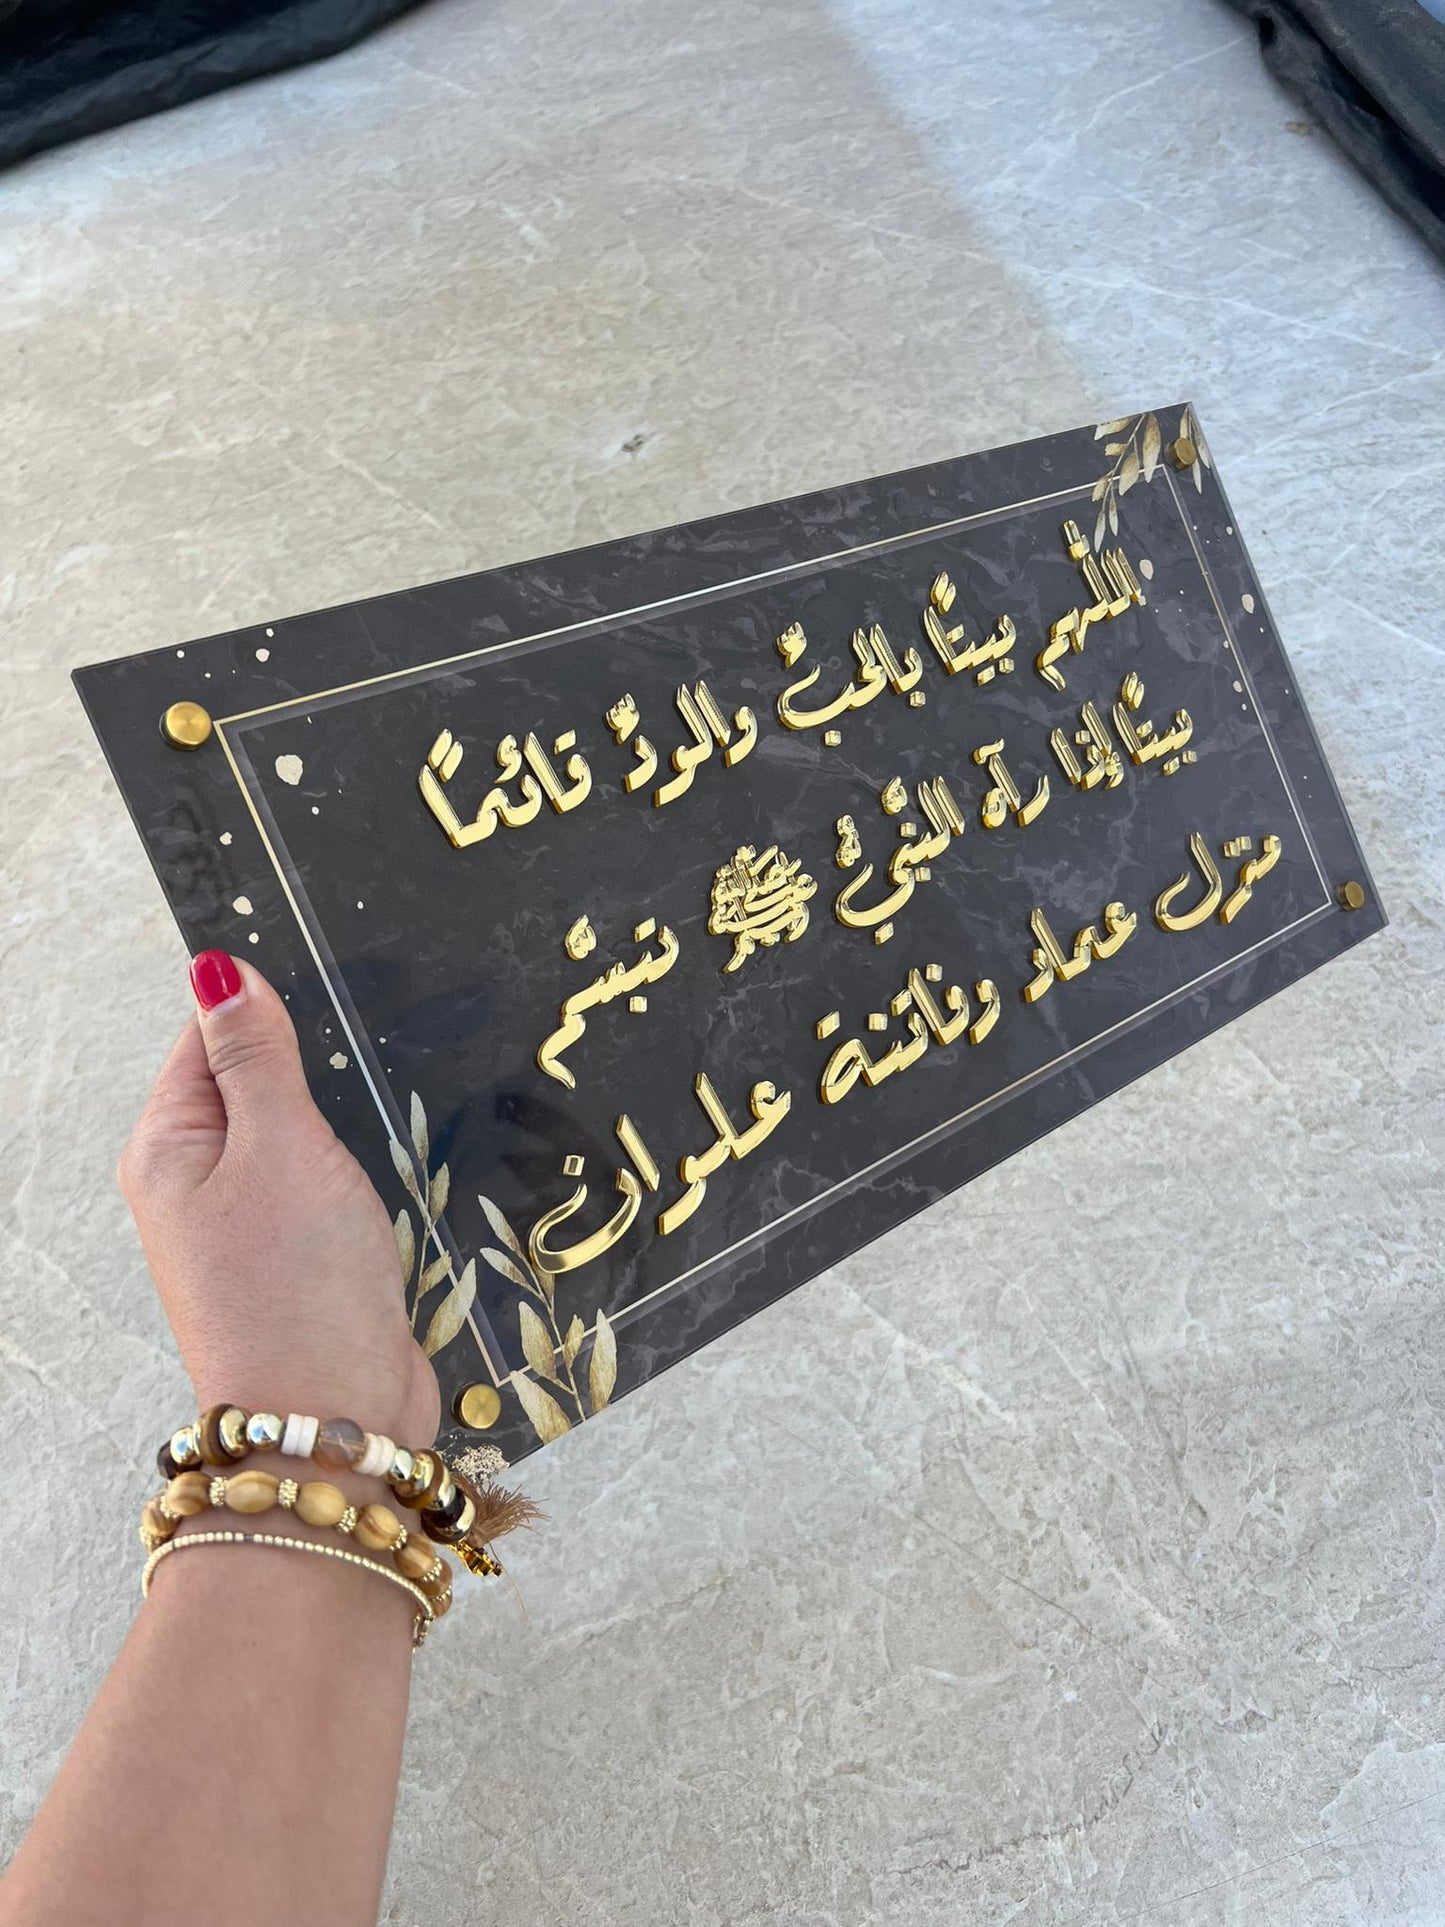 اللّهم بيتًا بالحبِّ والودِّ قائمًا
بيتًا إذا رآه النبيُّ ﷺ تبسَّم
منزل عماد وفاتنة علوان